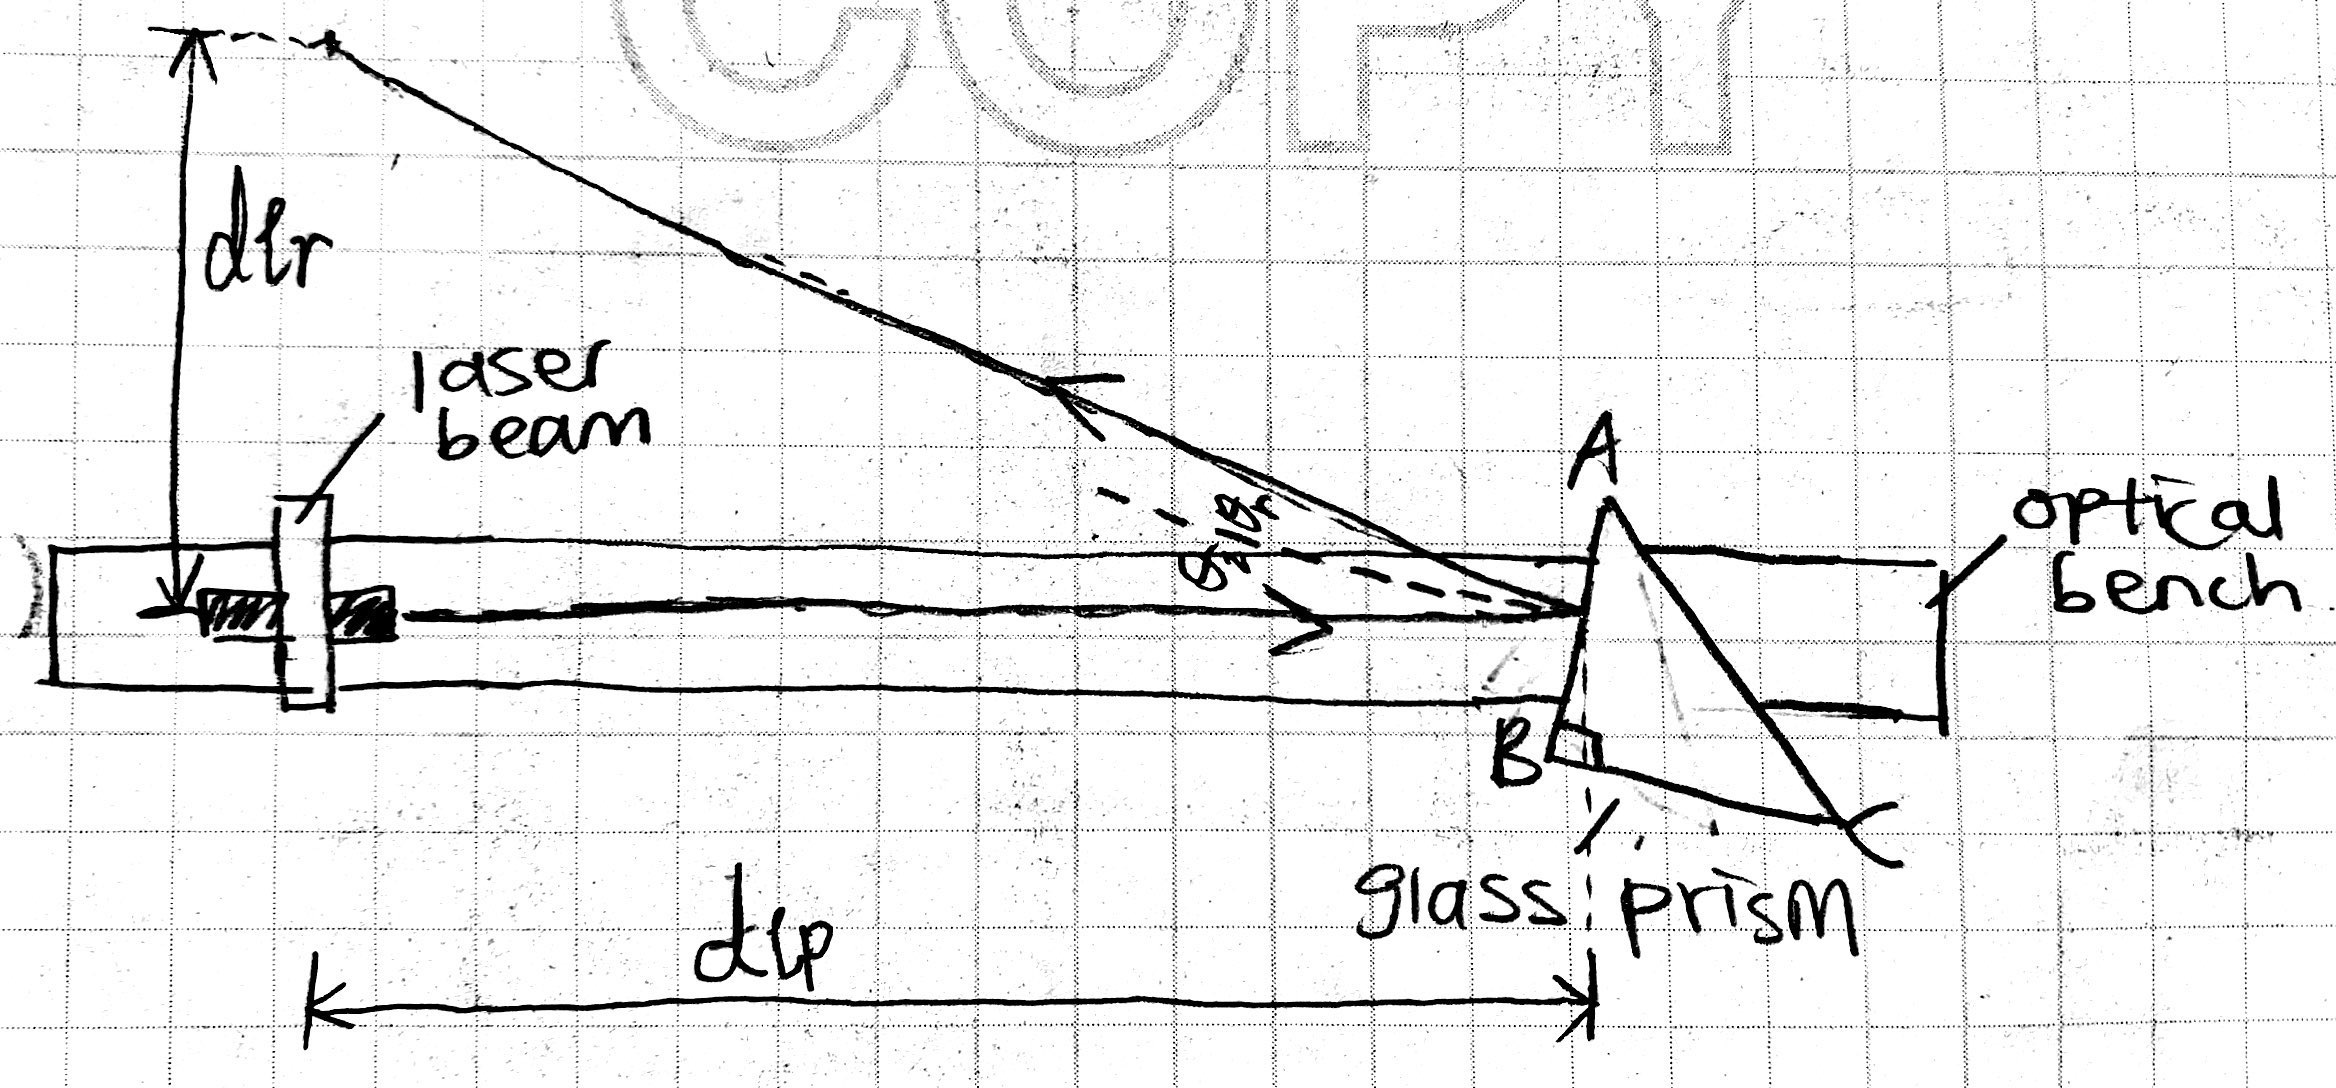 COPY
dlr
laser
beam
A
optical
bench
θi
θr
B
C
glass prism
dlp